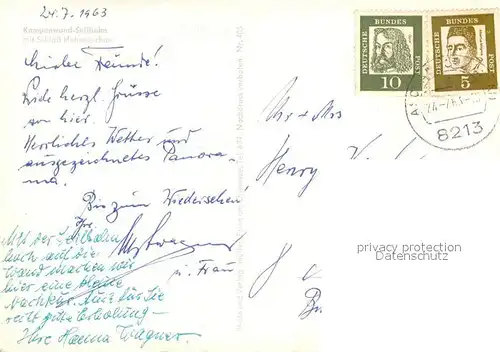 24.7.1963
Kampenwand-Seilbahn
mit Schloß Hohenaschau
Liebe Freunde!
Viele herzl. Grüsse
von hier.
Herrliches Wetter und
ausgezeichnetes Panora-
ma.
Bis zum Wiedersehen
Ihre
u. Frau
Mit der Seilbahn
hoch auf die
Wand machen wir
hier eine kleine
Nachkur. Nur für die
recht gute Erholung –
Ihre Hanna Wagner.
DEUTSCHE BUNDES POST
10
DEUTSCHE BUNDES POST
5
8213
Mr + Mrs
Henry
privacy protection
Datenschutz